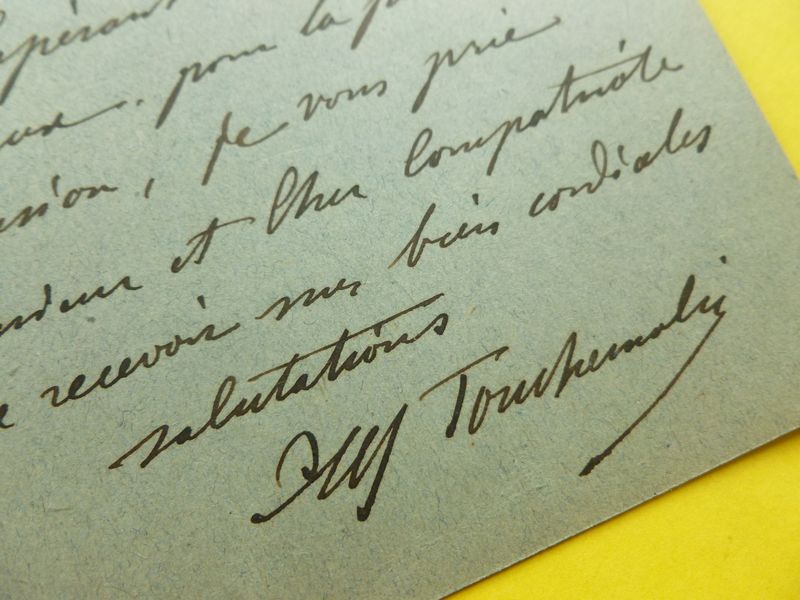 pour la
, je vous prie
et Cher Compatriote
recevoir mes bien cordiales
salutations
Alf Touchemolin